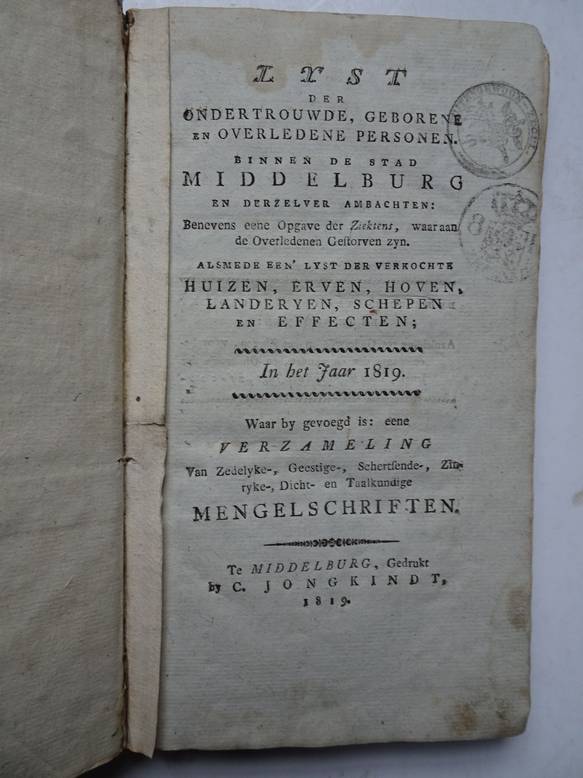 LYST
DER
ONDERTROUWDE, GEBORENE
EN OVERLEDENE PERSONEN.
BINNEN DE STAD
MIDDELBURG
EN DERZELVER AMBACHTEN:
Benevens eene Opgave der Ziektens, waar aan
de Overledenen Gestorven zyn.
ALSMEDE EEN' LYST DER VERKOCHTE
HUIZEN, ERVEN, HOVEN,
LANDERYEN, SCHEPEN
EN EFFECTEN;
In het Jaar 1819.
Waar by gevoegd is: eene
VERZAMELING
Van Zedelyke-, Geestige-, Schertsende-, Zin-
ryke-, Dicht- en Taalkundige
MENGELSCHRIFTEN.
Te MIDDELBURG, Gedrukt
by C. JONGKINDT,
1819.